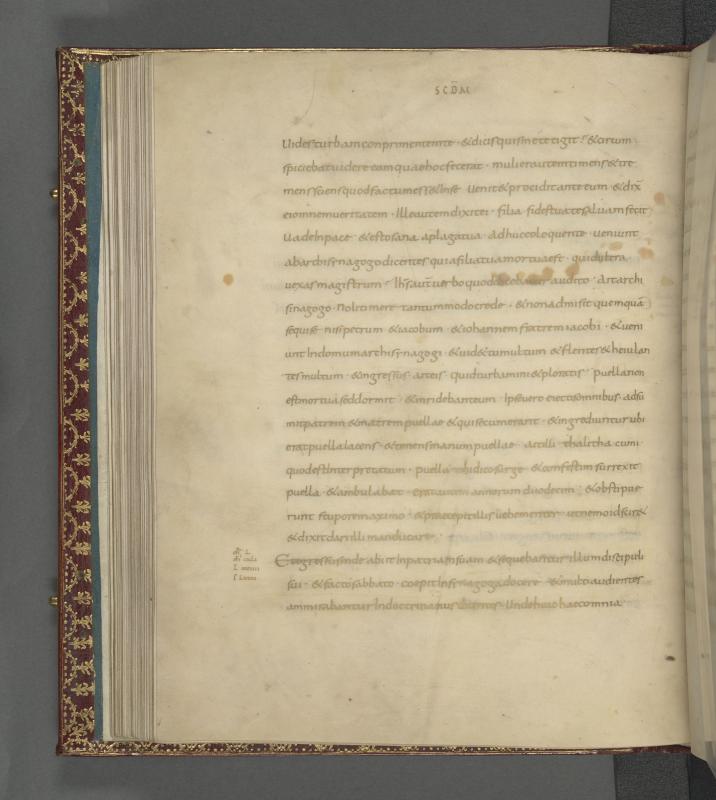 SCDM
Uides turbam conprimentem te · & dicis quis me tetigit · & circum
spiciebat uidere eam quae hoc fecerat · mulier autem timens & tre
mens sciens quod factum ess& in se uenit & procidit ante eum & dix̄
ei omnem ueritatem · Ille autem dixit ei · filia fides tua te saluam fecit
Uade in pace & esto sana a plaga tua adhuc eo loquente ueniunt
ab archisynagogo dicentes quia filia tua mortua est · quid ultra
uexas magistrum · Ihs aut̄ uerbo quod audito · Ait archi
synagogo · Noli timere tantummodo crede · & non admisit quemquā
sequi se nisi petrum & iacobum & iohannem fratrem iacobi · & ueni
unt In domum archisynagogi & uid& tumultum & flentes & heiulan
tes multum · & ingressus ait eis quid turbamini & ploratis puella non
est mortua sed dormit & inridebant eum · Ipse uero eiectis omnibus adsu
mit patrem & matrem puellae & qui secum erant · & ingrediuntur ubi
erat puella iacens · & tenens manum puellae ait illi thalitha cumi
quod est Interpretatum · puella tibi dico surge & confestim surrexit
puella & ambulabat · erat autem annorum duodecim & obstipue
runt stupore maximo · & praecepit illis uehementer ut nemo id scir&
& dixit dari illi manducare ·
Et egressus inde abiit In patriam suam & sequebantur illum discipuli
sui · & facto sabbato coepit In synagoga docere & multi audientes
ammirabantur In doctrina eius dicentes · Unde huic haec omnia